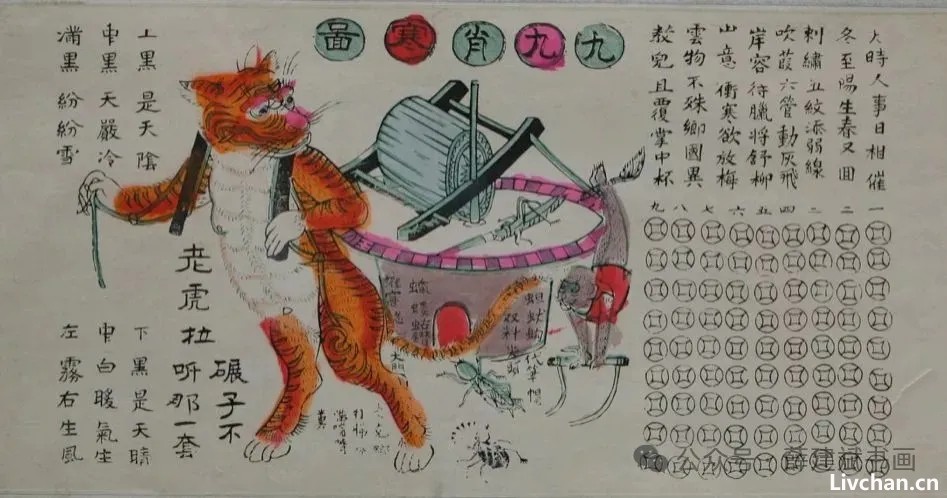 九九肖寒啚
天時人事日相催
冬至陽生春又囬
刺繡五紋添弱線
吹葭六管動灰飛
岸容待臘將舒柳
山意衝寒欲放梅
雲物不殊鄉國異
教兒且覆掌中杯
九 八 七 六 五 四 三 二 一
上黑是天陰
中黑天嚴冷
滿黑紛紛雪
下黑是天晴
中白暖氣生
左霧右生風
老虎拉
碾子不
听那一套
公众号
建斌书画
Livchan.cn